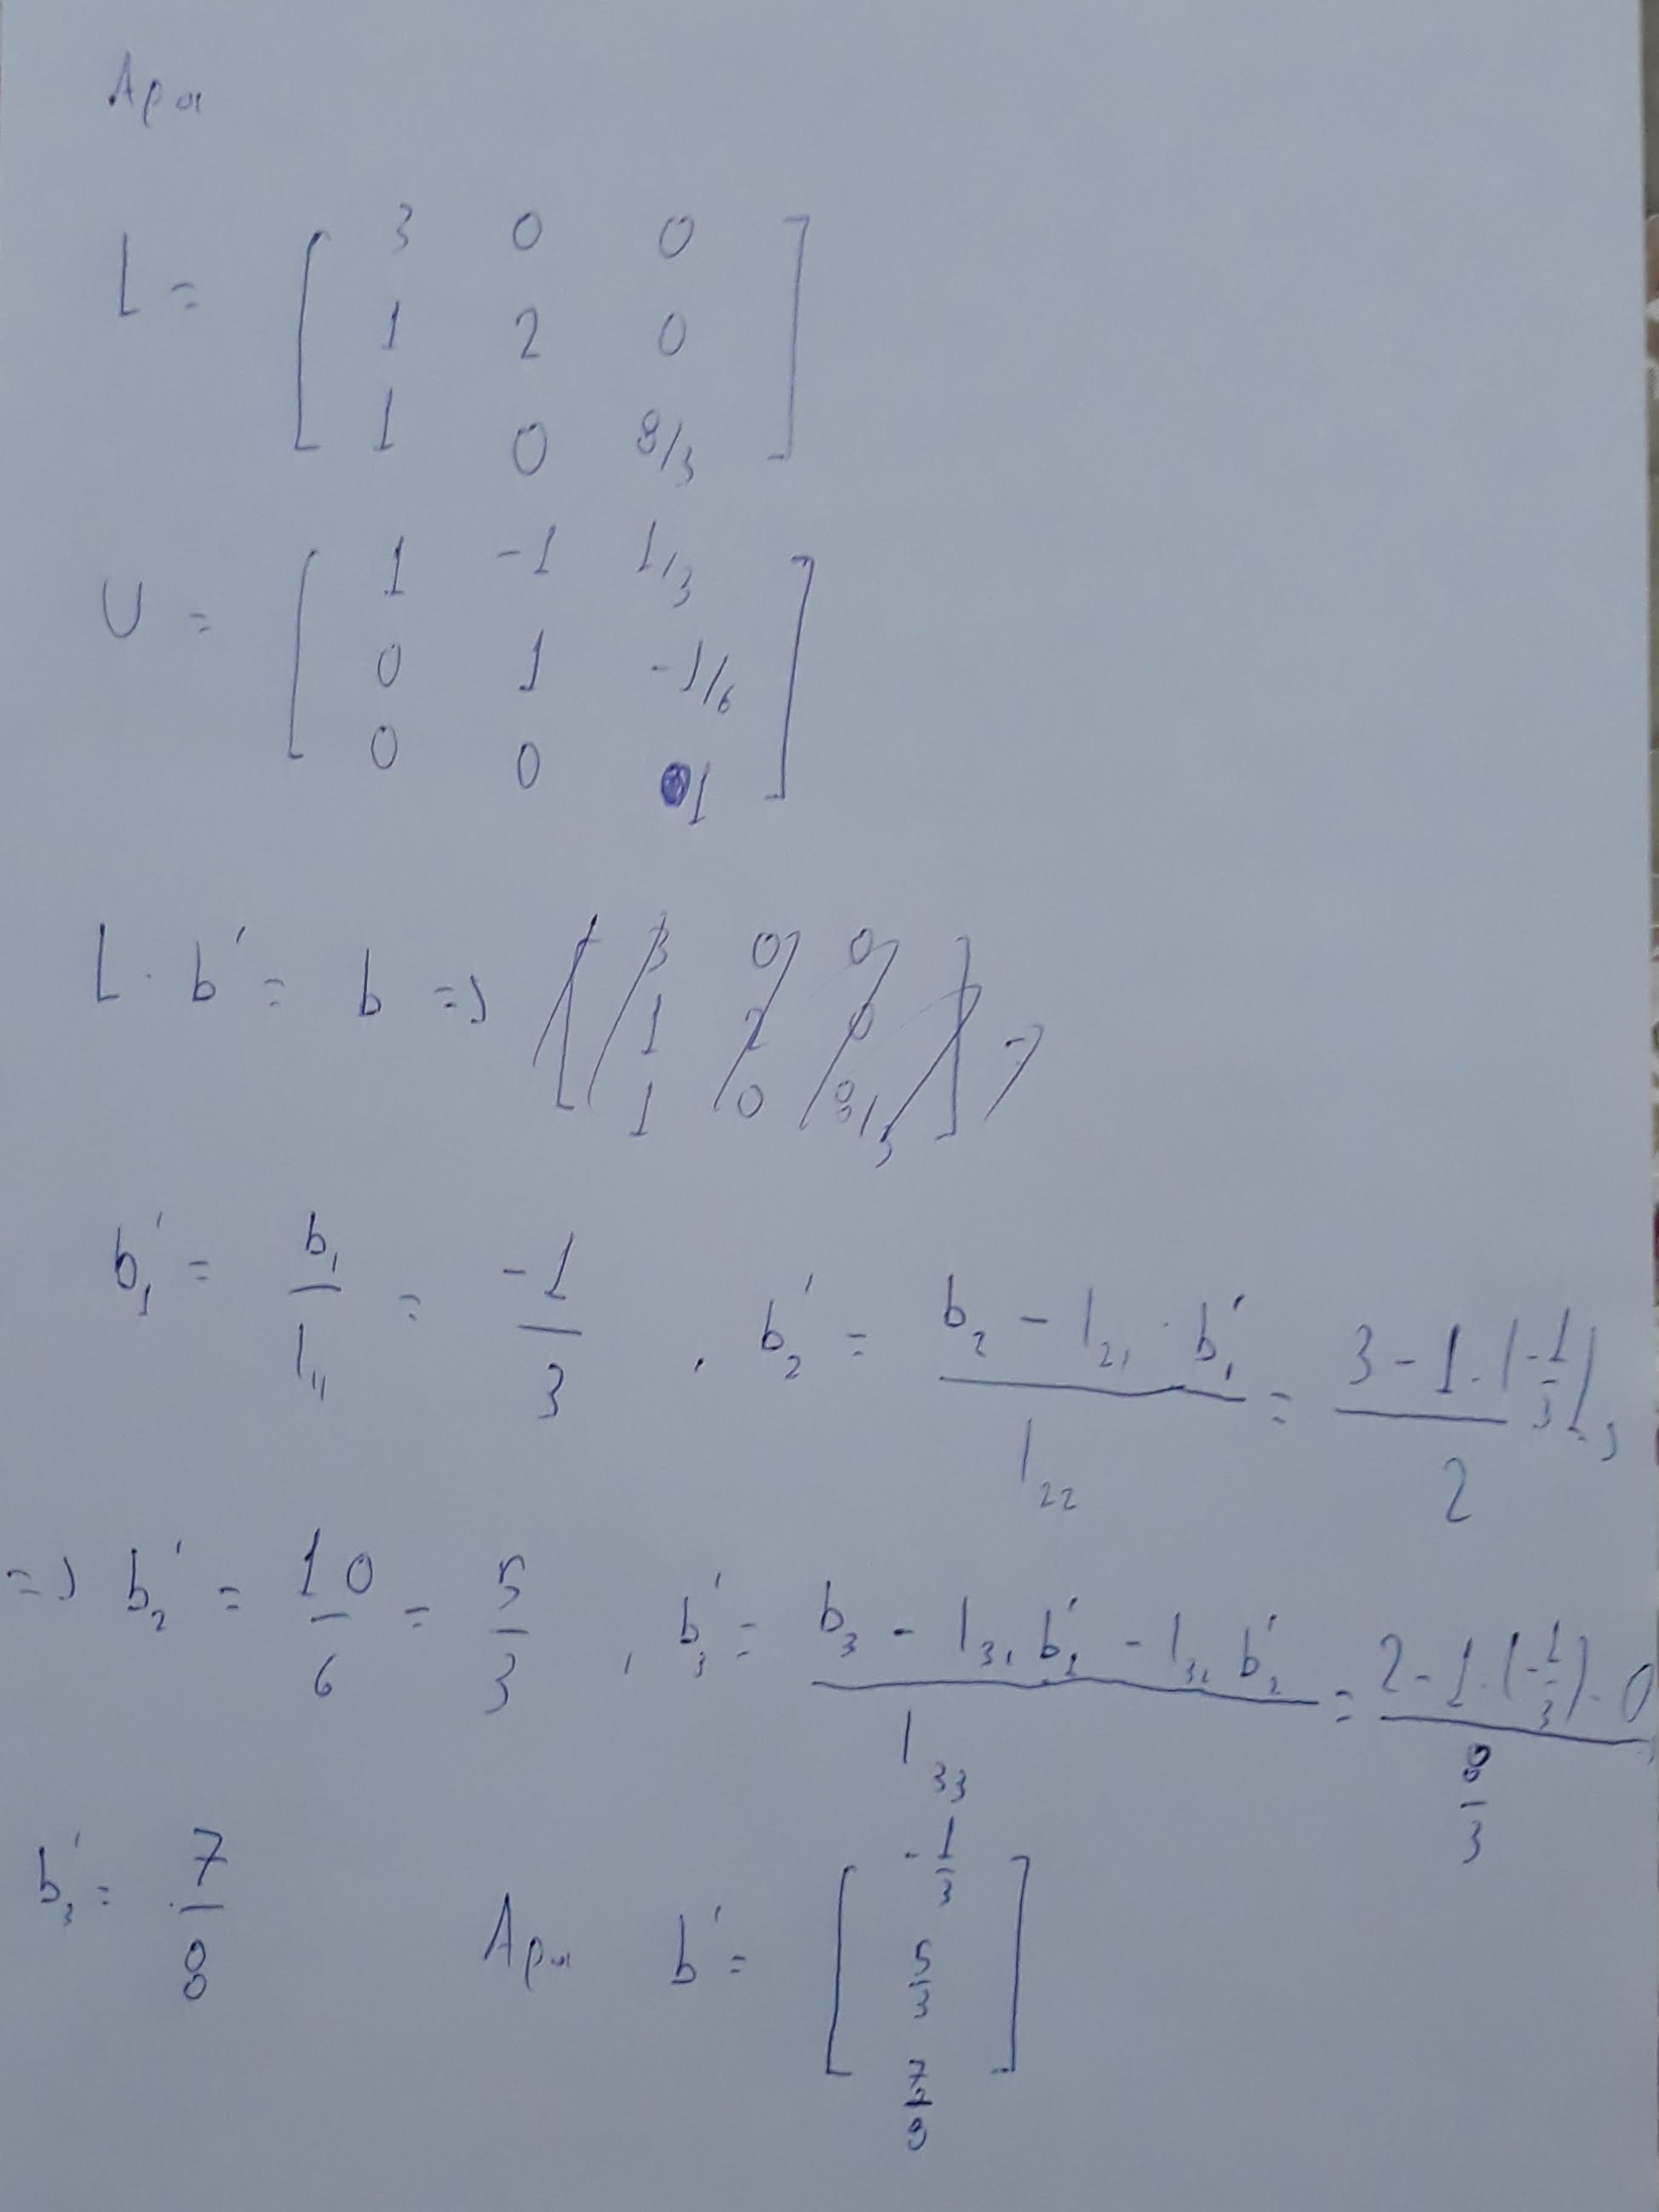 Άρα
L = [ 3 0 0
1 2 0
1 0 8/3 ]
U = [ 1 -1 1/3
0 1 -1/6
0 0 1 ]
L · b' = b => [ 3 0 0
1 2 0
1 0 8/3 ] =
b₁' = b₁ / l₁₁ = -1/3 , b₂' = (b₂ - l₂₁ · b₁') / l₂₂ = (3 - 1 · (-1/3)) / 2 =>
=> b₂' = 10/6 = 5/3 , b₃' = (b₃ - l₃₁ b₁' - l₃₂ b₂') / l₃₃ = (2 - 1 · (-1/3) - 0) / (8/3)
b₃' = 7/8 Άρα b' = [ -1/3
5/3
7/8 ]